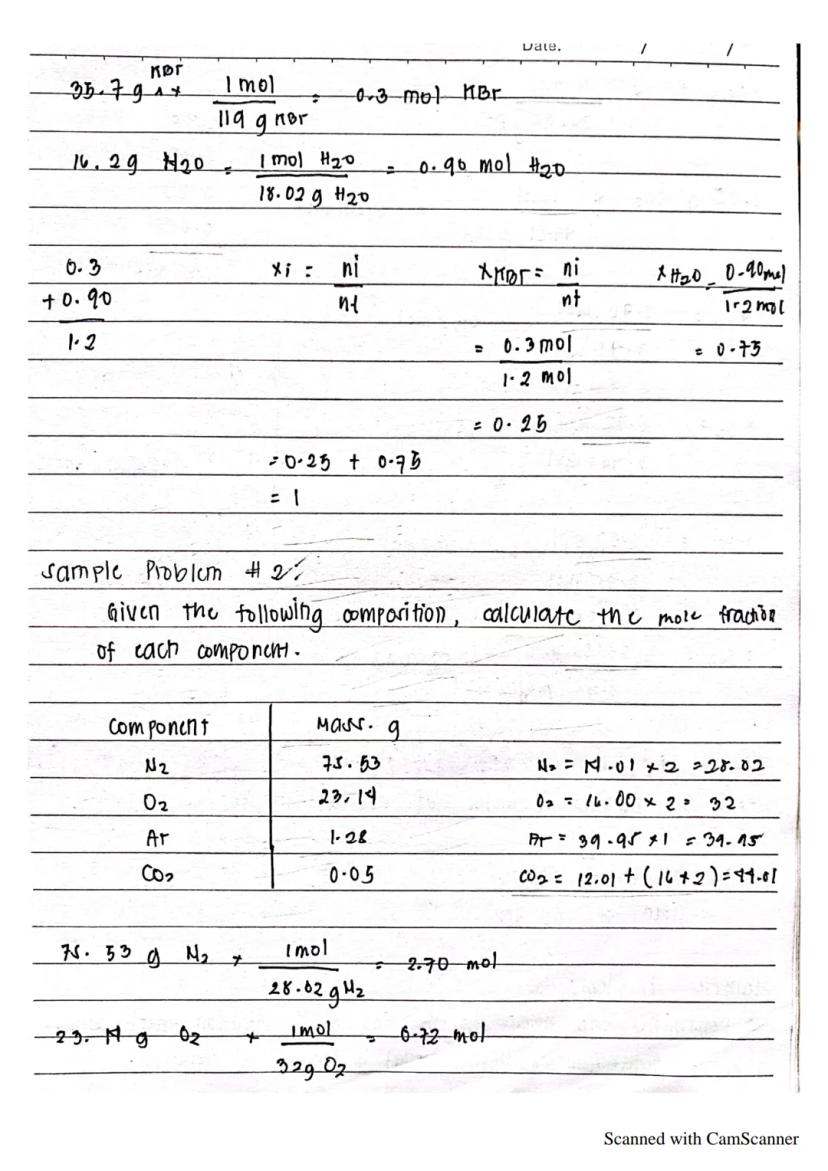 Date. / /
KBr
35.7 g ^ x 1 mol / 119 g KBr = 0.3 mol KBr
16.2g H2O = 1 mol H2O / 18.02 g H2O = 0.90 mol H2O
0.3 xi = ni / nt xKBr = ni / nt xH2O = 0.90mol / 1.2 mol
+ 0.90
1.2 = 0.3 mol / 1.2 mol = 0.75
= 0.25
= 0.25 + 0.75
= 1
Sample Problem # 2:
Given the following composition, calculate the mole fraction
of each component.
Component Mass. g
N2 75.53 N2 = 14.01 x 2 = 28.02
O2 23.14 O2 = 16.00 x 2 = 32
Ar 1.28 Ar = 39.95 x 1 = 39.95
CO2 0.05 CO2 = 12.01 + (16 x 2) = 44.01
75.53 g N2 x 1 mol / 28.02 g N2 = 2.70 mol
23.14 g O2 x 1 mol / 32g O2 = 0.72 mol
Scanned with CamScanner